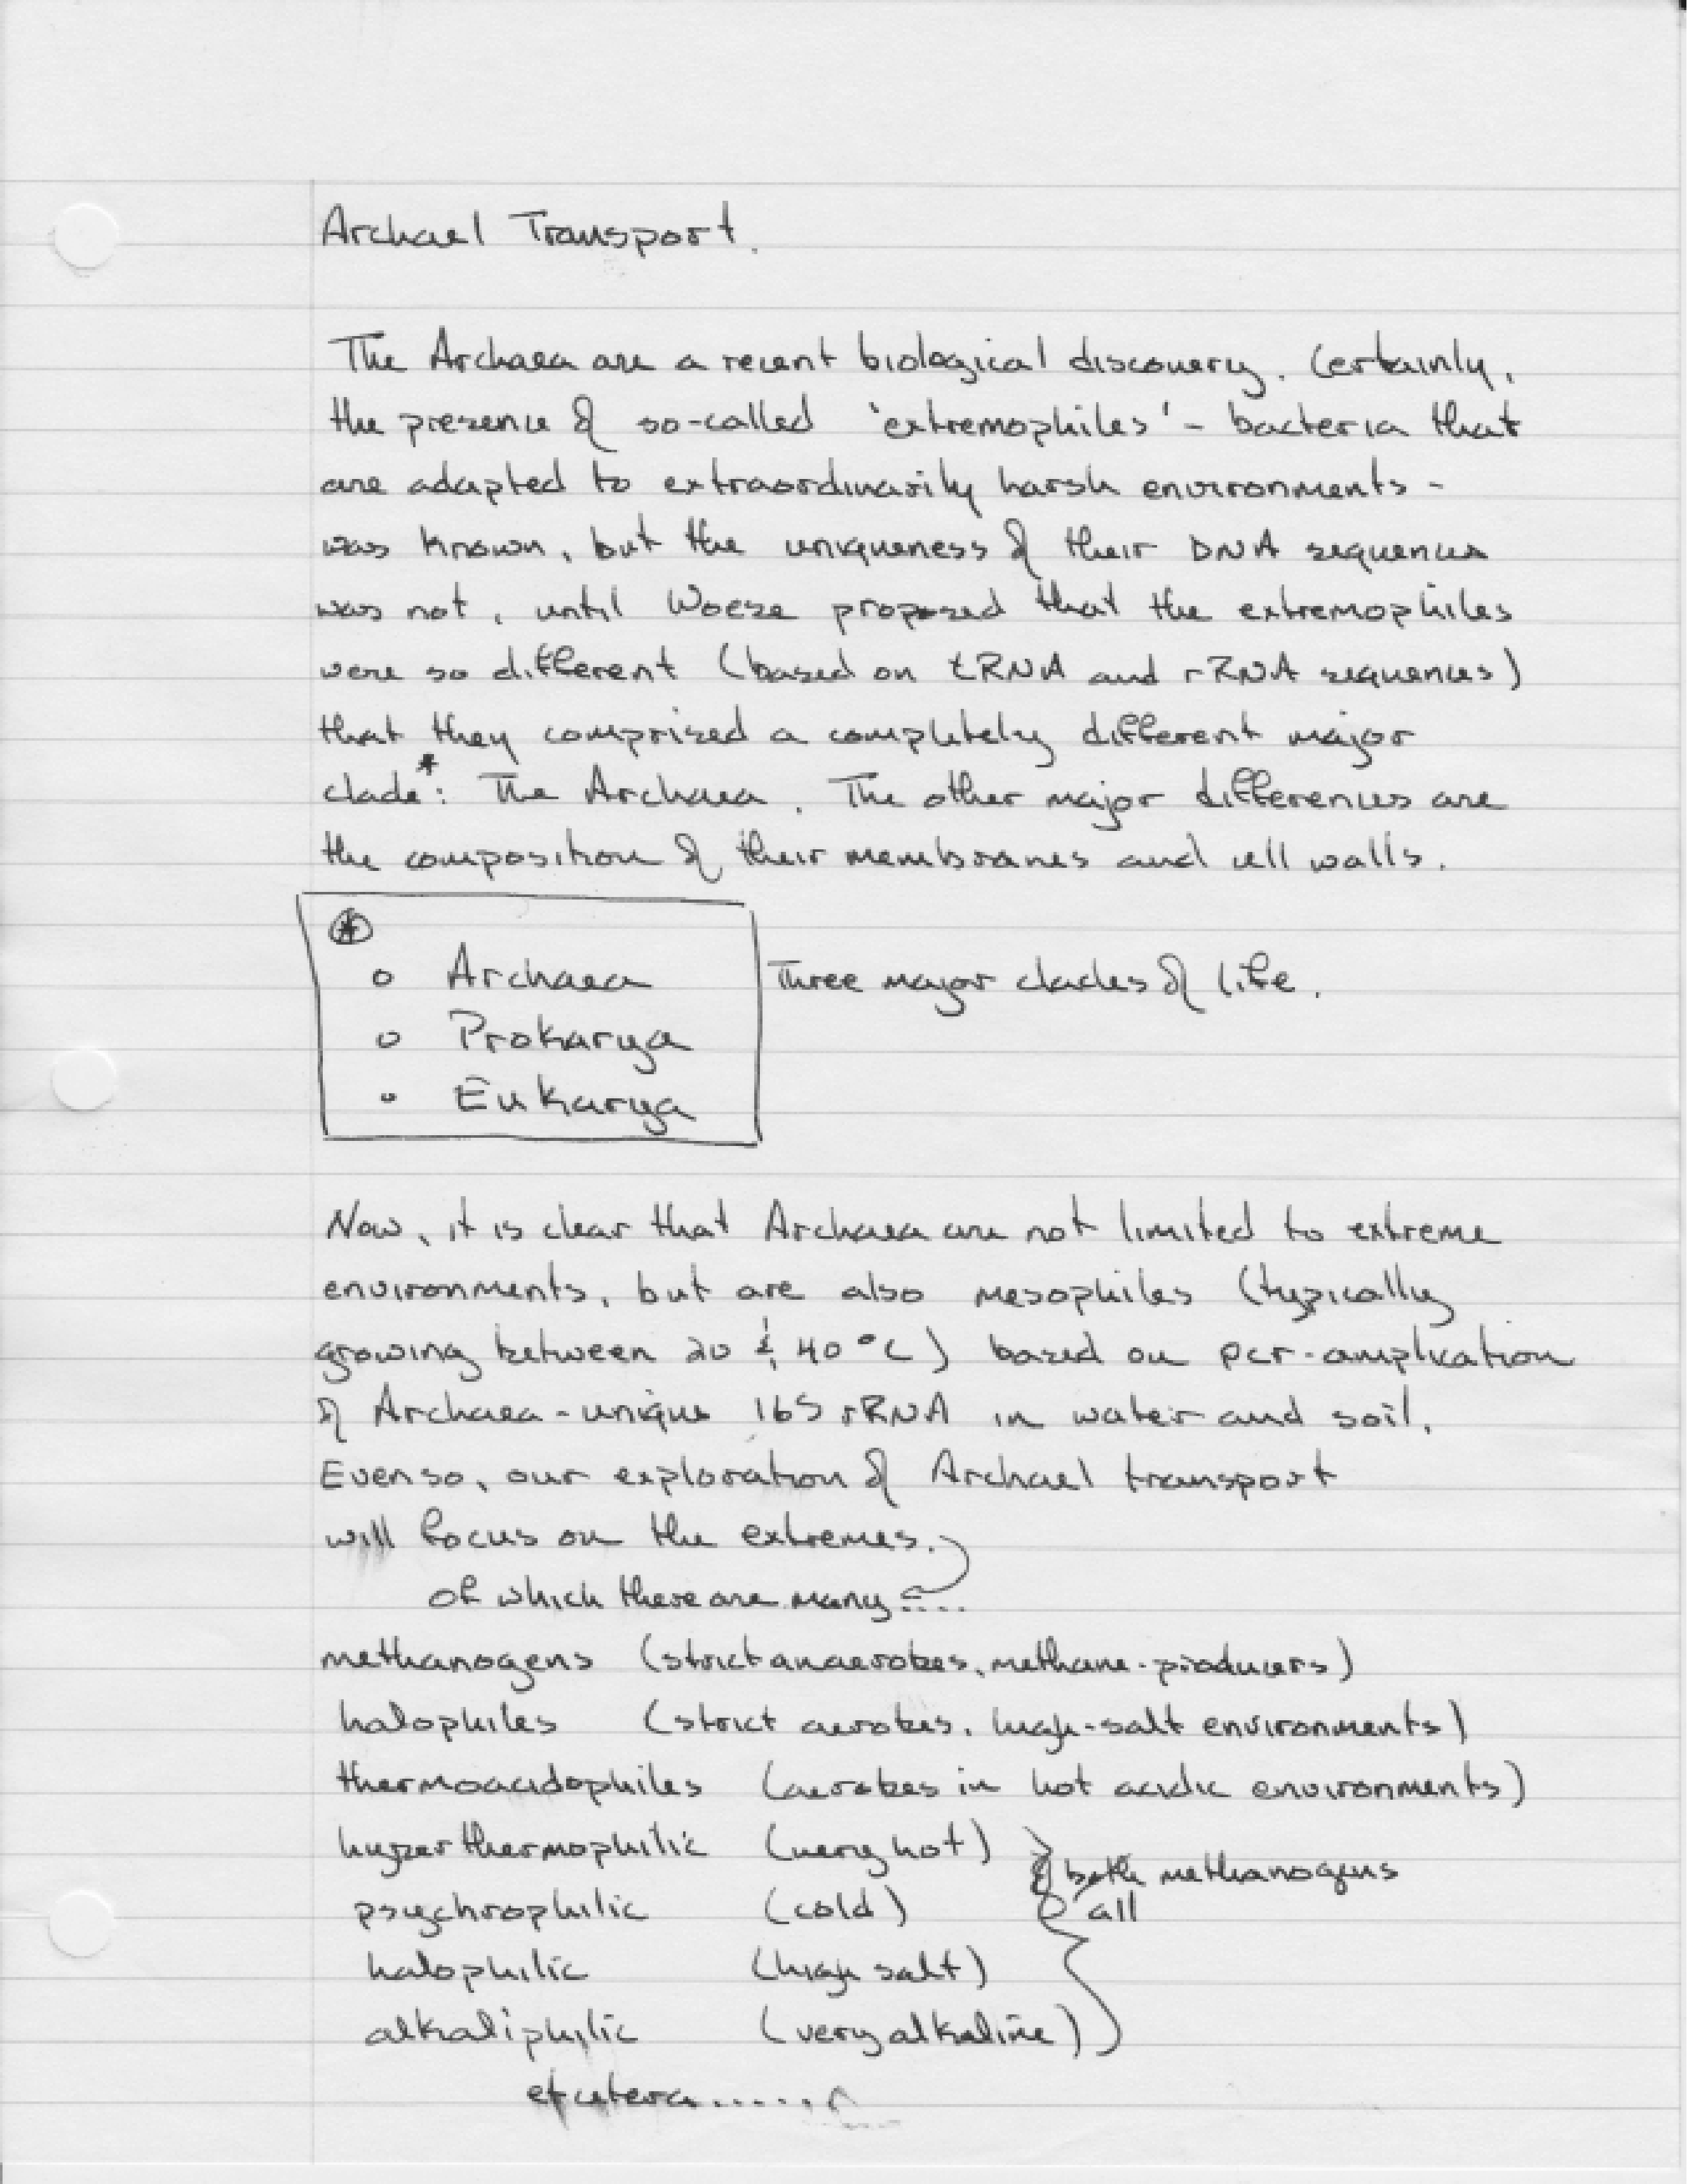 Archael Transport.
The Archaea are a recent biological discovery. Certainly,
the presence of so-called 'extremophiles' - bacteria that
are adapted to extraordinarily harsh environments -
was known, but the uniqueness of their DNA sequences
was not, until Woese proposed that the extremophiles
were so different (based on tRNA and rRNA sequences)
that they comprised a completely different major
clade*: The Archaea. The other major differences are
the composition of their membranes and cell walls.
*
o Archaea
Three major clades of life.
o Prokarya
o Eukarya
Now, it is clear that Archaea are not limited to extreme
environments, but are also mesophiles (typically
growing between 20 & 40 °C) based on pcr-amplication
of Archaea-unique 16S rRNA in water and soil.
Even so, our exploration of Archael transport
will focus on the extremes.
of which there are many....
methanogens (strict anaerobes, methane-producers)
halophiles (strict aerobes, high-salt environments)
thermoacidophiles (aerobes in hot acidic environments)
hyperthermophilic (very hot)
both methanogens
psychrophilic (cold)
all
halophilic (high salt)
alkaliphilic (very alkaline)
etcetera......